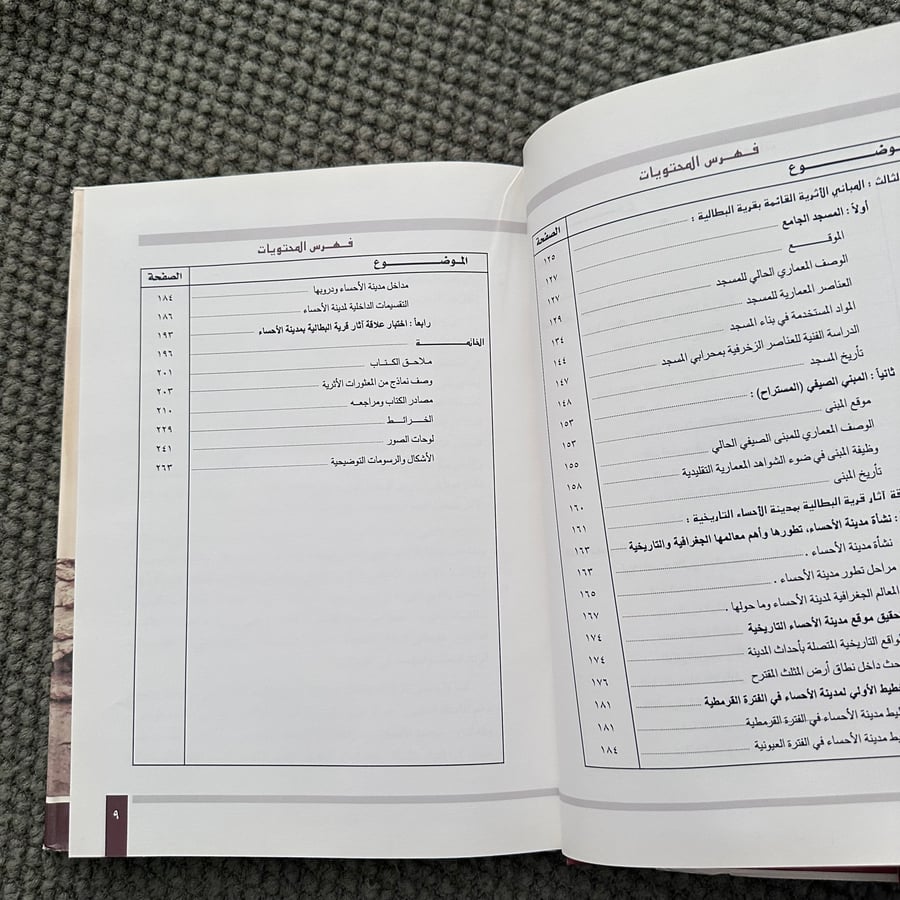 فهرس المحتويات
الصفحة
الثالث : المباني الأثرية القائمة بقرية البطالية : ١٢٥
أولاً : المسجد الجامع ١٢٧
الموقع ١٢٧
الوصف المعماري الحالي للمسجد ١٢٩
العناصر المعمارية للمسجد ١٣٤
المواد المستخدمة في بناء المسجد ١٤٤
الدراسة الفنية للعناصر الزخرفية بمحرابي المسجد ١٤٧
تأريخ المسجد ١٤٨
ثانياً : المبنى الصيفي (المستراح) : ١٥٣
موقع المبنى ١٥٣
الوصف المعماري للمبنى الصيفي الحالي ١٥٥
وظيفة المبنى في ضوء الشواهد المعمارية التقليدية ١٥٨
تأريخ المبنى ١٦٠
آثار قرية البطالية بمدينة الأحساء التاريخية : ١٦١
: نشأة مدينة الأحساء، تطورها وأهم معالمها الجغرافية والتاريخية ١٦٣
نشأة مدينة الأحساء . ١٦٣
مراحل تطور مدينة الأحساء . ١٦٥
المعالم الجغرافية لمدينة الأحساء وما حولها . ١٦٧
موقع مدينة الأحساء التاريخية ١٧٤
التاريخية المتصلة بأحداث المدينة ١٧٤
داخل نطاق أرض المثلث المقترح ١٧٦
الأولي لمدينة الأحساء في الفترة القرمطية ١٨١
مدينة الأحساء في الفترة القرمطية ١٨١
مدينة الأحساء في الفترة العيونية ١٨٤
فهرس المحتويات
الموضوع الصفحة
مداخل مدينة الأحساء ودروبها ١٨٤
التقسيمات الداخلية لمدينة الأحساء ١٨٦
رابعاً : اختبار علاقة آثار قرية البطالية بمدينة الأحساء ١٩٣
الخاتمة ١٩٦
ملاحق الكتاب ٢٠١
وصف نماذج من المعثورات الأثرية ٢٠٣
مصادر الكتاب ومراجعه ٢١٠
الخرائط ٢٢٩
لوحات الصور ٢٤١
الأشكال والرسومات التوضيحية ٢٦٣
٩